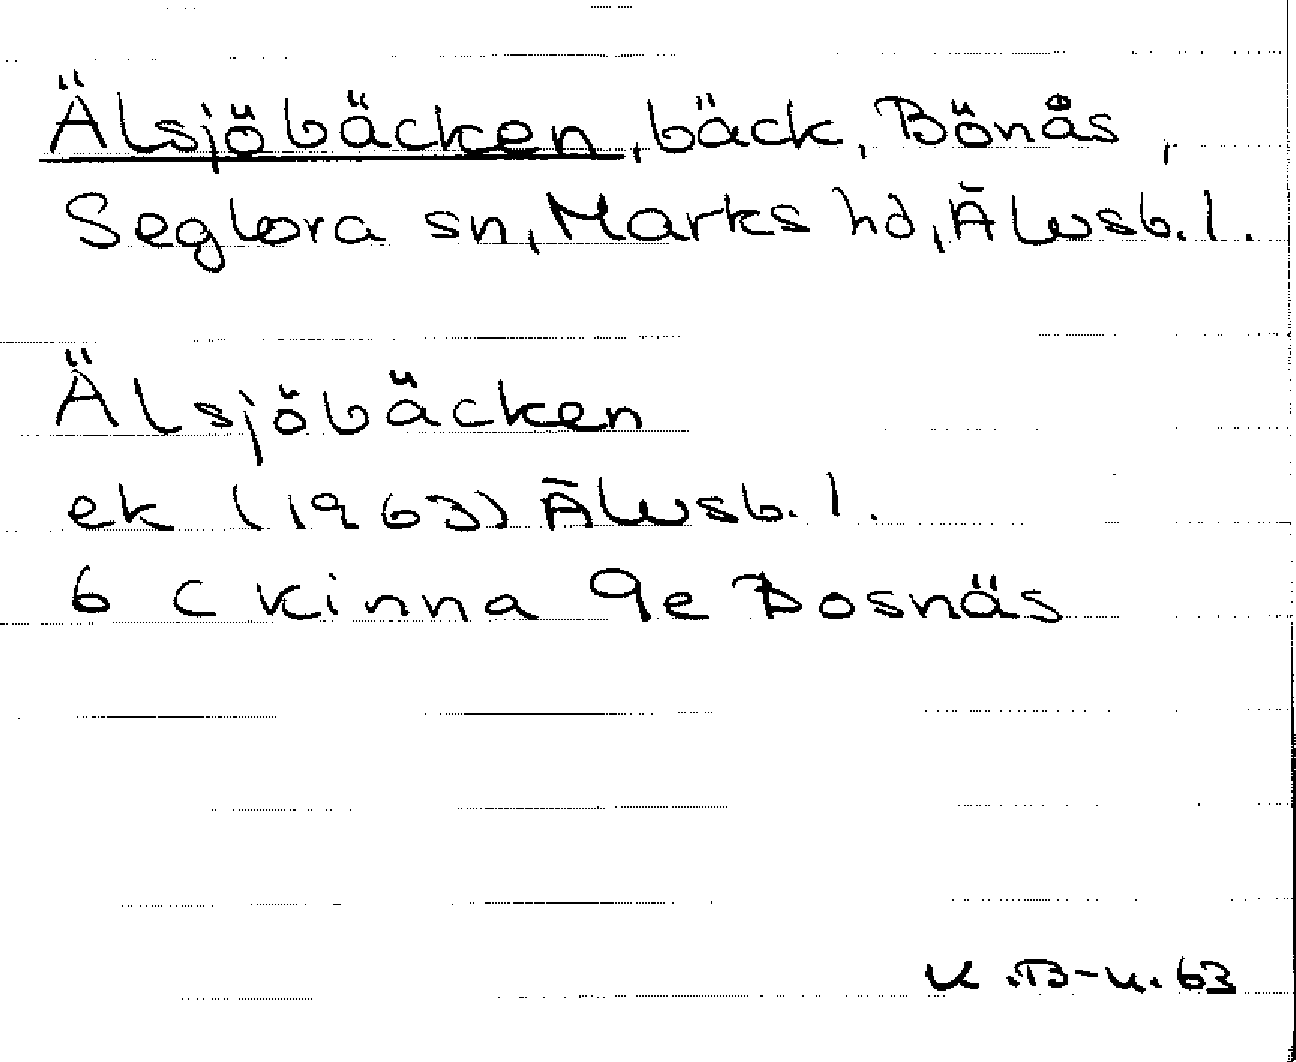 Älsjöbäcken, bäck, Bönås,
Seglora sn, Marks hd, Älvsb. l.
Älsjöbäcken
ek (1963) Älvsb. l.
6 C Kinna 9e Dosnäs
K.B-u. 63